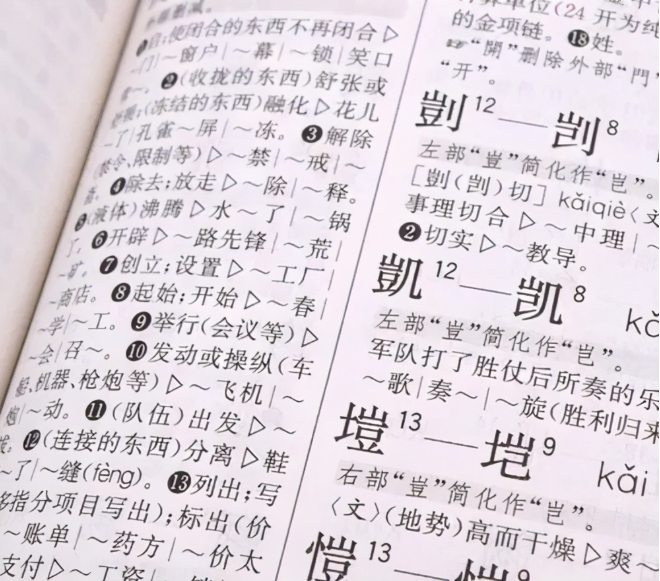 启;使闭合的东西不再闭合▷
~门|~窗户|~幕|~锁|笑口
~。❷(收拢的东西)舒张或
(冻结的东西)融化▷花儿
~了|孔雀~屏|~冻。❸解除
(禁令、限制等)▷~禁|~戒|~
❹除去;放走▷~除|~释。
❺(液体)沸腾▷水~了|~锅
了。❻开辟▷~路先锋|~荒|
~矿。❼创立;设置▷~工厂|
~商店。❽起始;开始▷~春|
~学|~工。❾举行(会议等)▷
~会|召~。❿发动或操纵(车
船、机器、枪炮等)▷~飞机|~
炮|~动。⓫(队伍)出发▷~
拔。⓬(连接的东西)分离▷鞋
~了|~缝(fèng)。⓭列出;写
多指分项目写出);标出(价
~账单|~药方|~价太
支付▷~工资|
单位(24 开为纯
的金项链。⓲姓。
☞“開”删除外部“門”
“开”。
剴12——剀8
左部“豈”简化作“岂”。
[剴(剀)切] kǎiqiè〈文
事理切合▷~中理|~
❷切实▷~教导。
凱12——凯8 kǎ
左部“豈”简化作“岂”。
军队打了胜仗后所奏的乐
~歌|奏~|~旋(胜利归来
塏13——垲9 kǎi
右部“豈”简化作“岂”。
〈文〉(地势)高而干燥▷爽~
愷13——恺9